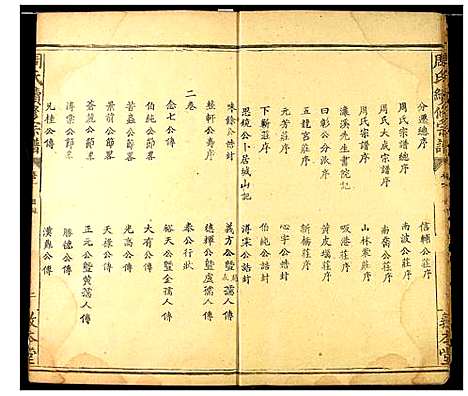 分遷總序
周氏宗譜總序
周氏大成宗譜序
周氏宗譜序
濂溪先生書院記
日彰公分派序
五龍宮莊序
元芳莊序
下衝莊序
思繞公卜居城山記
信輔公莊序
南波公莊序
南喬公莊序
山林業莊序
吸港莊序
黃皮瑞莊序
新楊莊序
心字公誥封
伯純公誥封
濤宋公誥封
味餘公誥封
慈軒公壽序
二卷
念七公傳
伯純公節畧
若蟲公節畧
景前公節畧
蒼麓公節畧
濤棠公傳
兄桂公傳
義方公暨誥封
德輝公暨盧孺人傳
泰公行狀
裕天公暨黃孺人傳
大有公傳
光高公傳
天祿公傳
正元公暨黃孺人傳
勝德公傳
漢難公傳
周氏續修宗譜
敦本堂